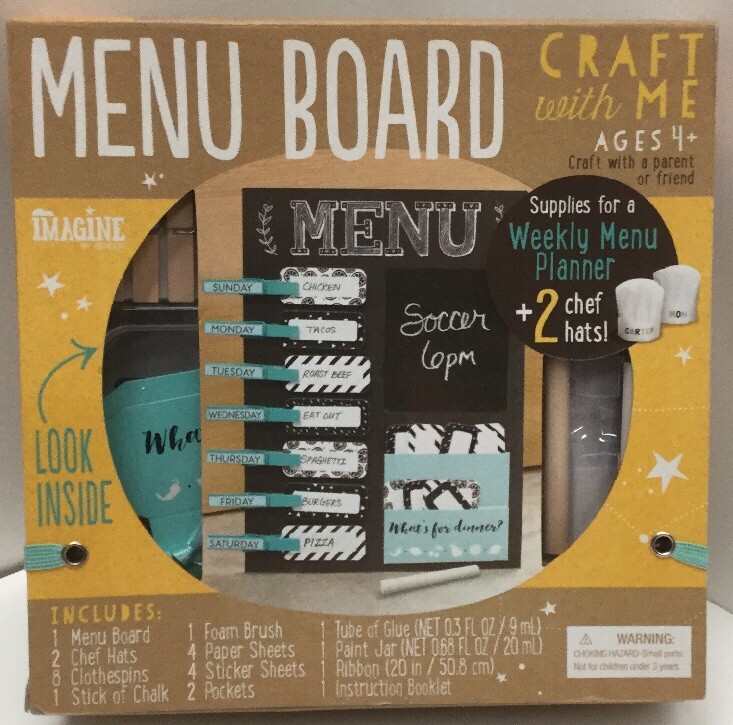 MENU BOARD
CRAFT
with ME
AGES 4+
Craft with a parent
or friend
IMAGINE
Supplies for a
Weekly Menu
Planner
+2 chef
hats!
CARTER
MOM
MENU
SUNDAY CHICKEN
MONDAY TACOS
TUESDAY ROAST BEEF
WEDNESDAY EAT OUT
THURSDAY SPAGHETTI
FRIDAY BURGERS
SATURDAY PIZZA
Soccer
6pm
What's for dinner?
Wha
LOOK
INSIDE
INCLUDES:
1 Menu Board
2 Chef Hats
8 Clothespins
1 Stick of Chalk
1 Foam Brush
4 Paper Sheets
4 Sticker Sheets
2 Pockets
1 Tube of Glue (NET 0.3 FL OZ / 9 mL)
1 Paint Jar (NET 0.68 FL OZ / 20 mL)
1 Ribbon (20 in / 50.8 cm)
1 Instruction Booklet
WARNING:
CHOKING HAZARD-Small parts.
Not for children under 3 years.